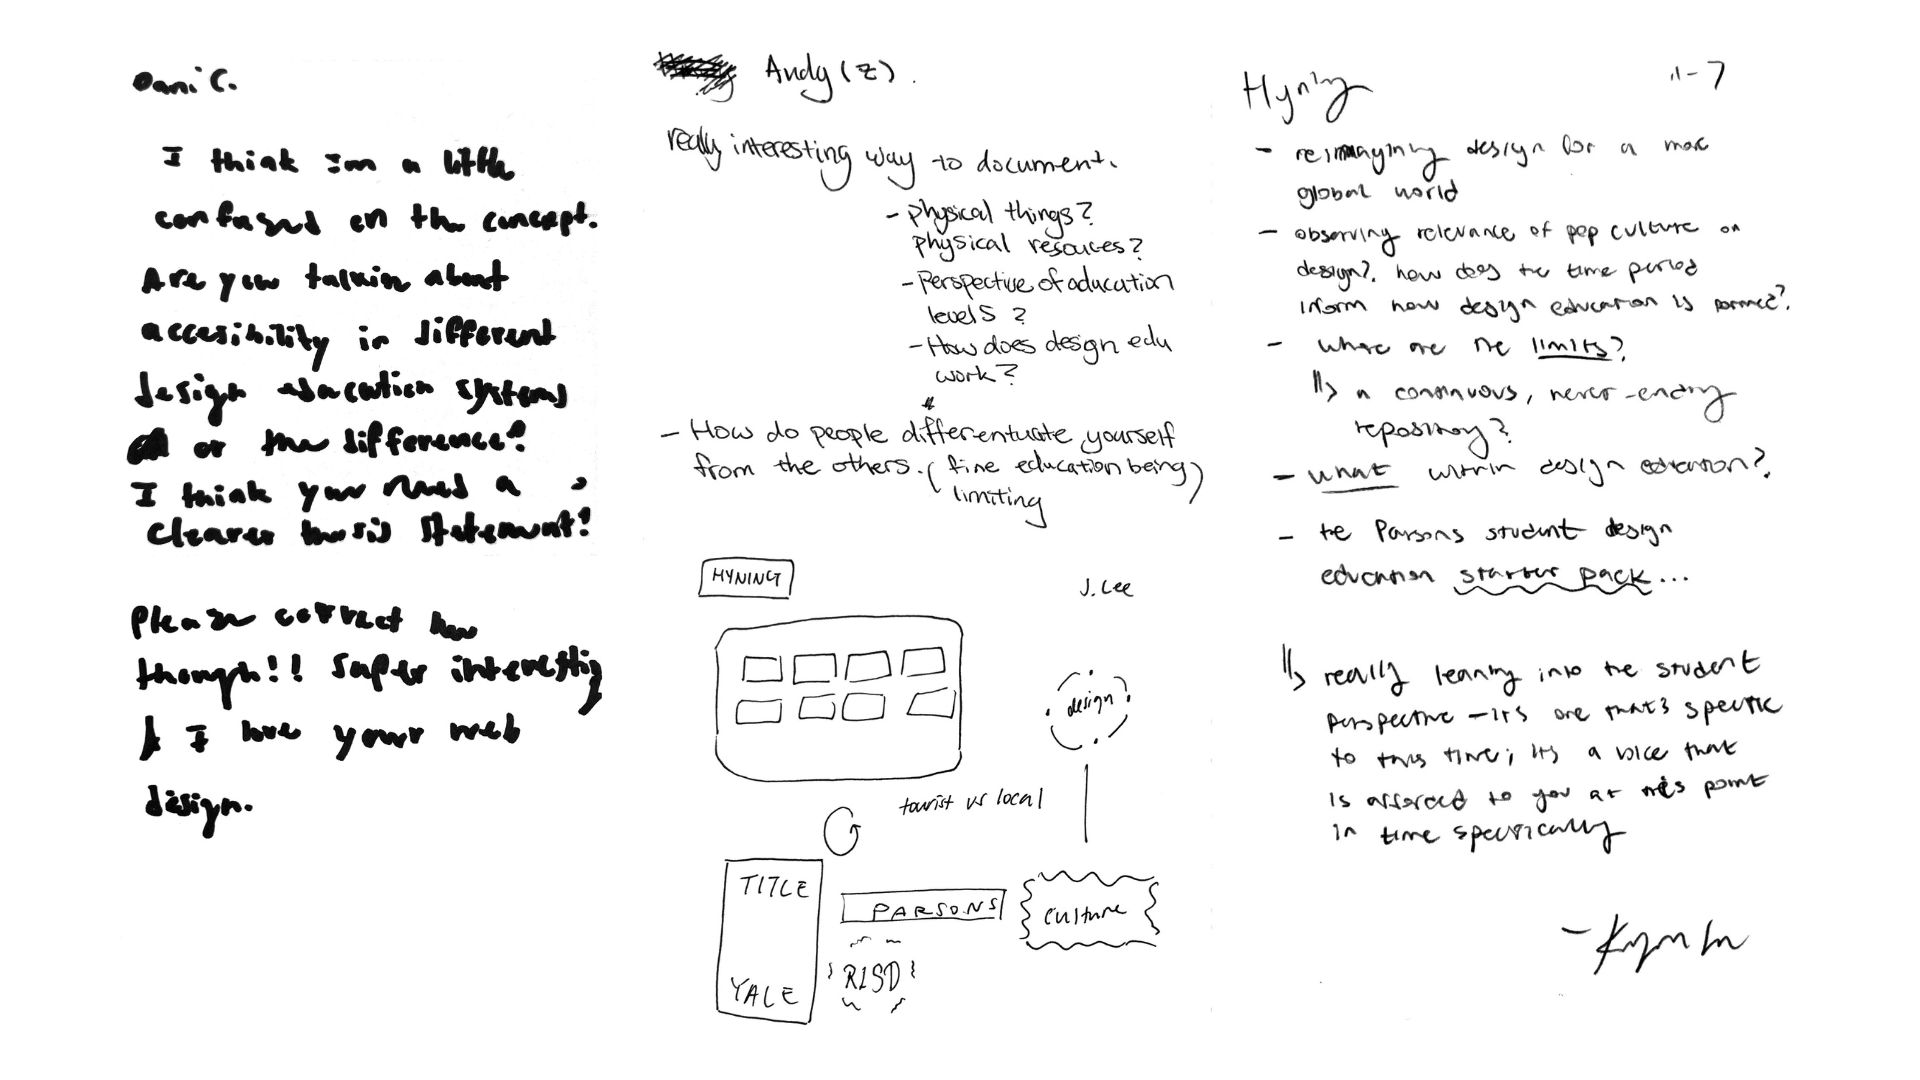 Dani C.
I think im a little
confused on the concept.
Are you talkin about
accesibility in different
design education systems
or the difference?
I think you need a
clearer thesis statement!
Please correct me
though!! Super interesting
& I love your web
design.
Andy (Z).
really interesting way to document.
- physical things?
physical resouces?
- Perspective of aducation
levels?
- How does design edu
work?
- How do people differentuate yourself
from the others. (fine education being)
limiting
HYNING
J. Lee
design
tourist vs local
TITLE
PARSONS
culture
RISD
YALE
Hyning
11-7
- reimagining design for a more
global world
- observing relevance of pop culture on
design? how does the time period
inform how design education is formed?
- where are the limits?
↳ a continuous, never-ending
repository?
- what within design education?
- the Parsons student design
education starter pack...
↳ really leaning into the student
perspective - its one that's specific
to this time; its a voice that
is afforded to you at this point
in time specifically